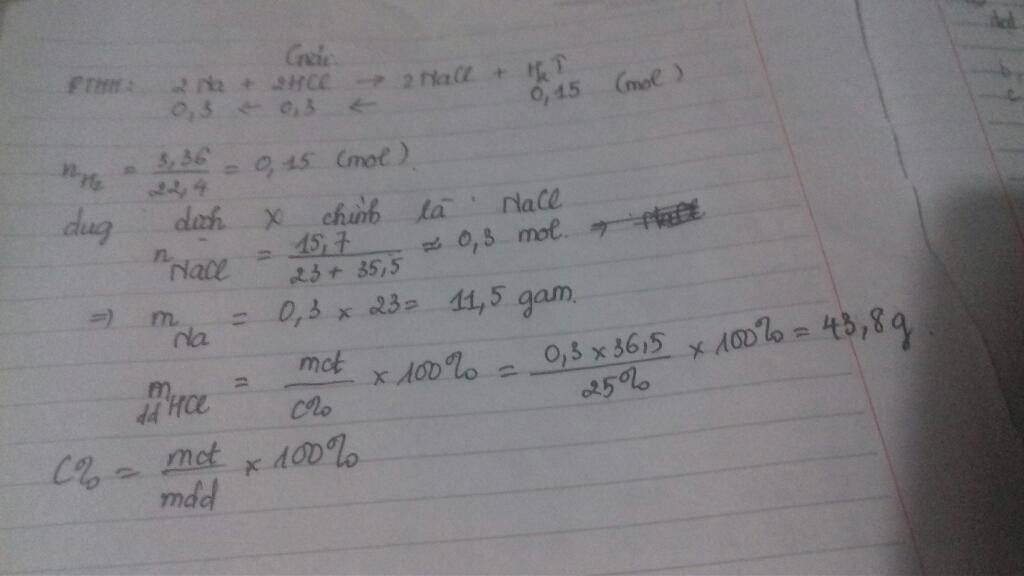 Giải:
PTHH: 2Na + 2HCl → 2NaCl + H₂↑
0,3 ← 0,3 ← 0,15 (mol)
n H₂ = 3,36 / 22,4 = 0,15 (mol).
dug dich X chính là NaCl
n NaCl = 15,7 / 23 + 35,5 ≈ 0,3 mol. ⇒
⇒ m Na = 0,3 × 23 = 11,5 gam.
m dd HCl = mct / C% × 100% = 0,3 × 36,5 / 25% × 100% = 43,8 g.
C% = mct / mdd × 100%